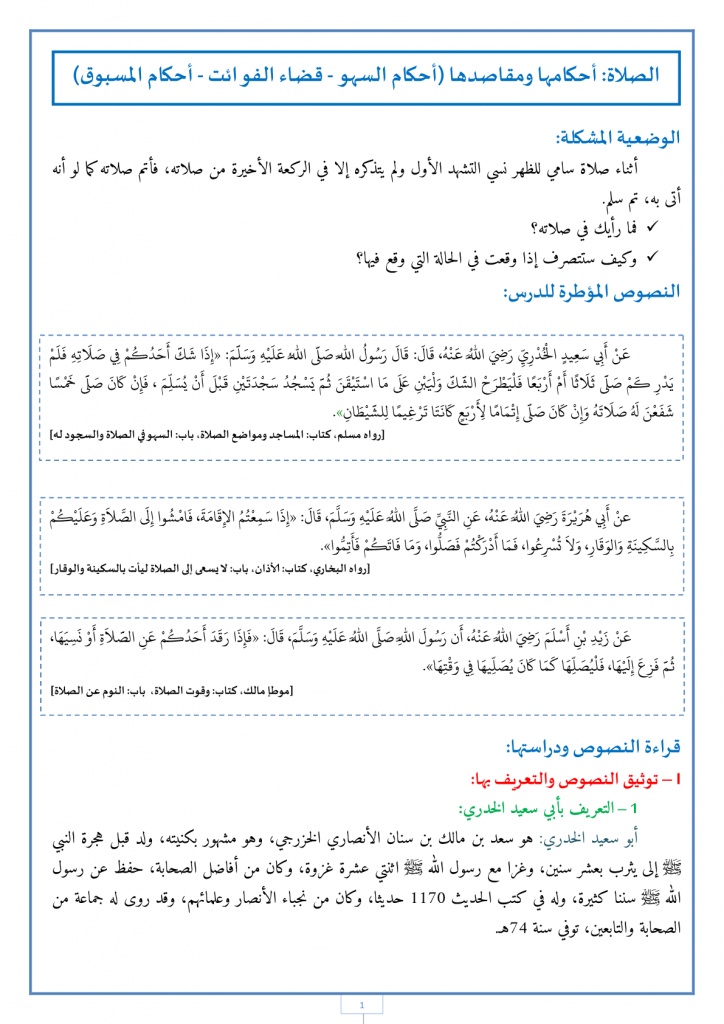 الصلاة: أحكامها ومقاصدها (أحكام السهو - قضاء الفوائت - أحكام المسبوق)
الوضعية المشكلة:
أثناء صلاة سامي للظهر نسي التشهد الأول ولم يتذكره إلا في الركعة الأخيرة من صلاته، فأتم صلاته كما لو أنه
أتى به، تم سلم.
✓ فما رأيك في صلاته؟
✓ وكيف ستتصرف إذا وقعت في الحالة التي وقع فيها؟
النصوص المؤطرة للدرس:
عَنْ أَبِي سَعِيدٍ الْخُدْرِيِّ رَضِيَ اللهُ عَنْهُ، قَالَ: قَالَ رَسُولُ اللهِ صَلَّى اللهُ عَلَيْهِ وَسَلَّمَ: «إِذَا شَكَّ أَحَدُكُمْ فِي صَلَاتِهِ فَلَمْ
يَدْرِ كَمْ صَلَّى ثَلَاثًا أَمْ أَرْبَعًا فَلْيَطْرَحْ الشَّكَّ وَلْيَبْنِ عَلَى مَا اسْتَيْقَنَ ثُمَّ يَسْجُدُ سَجْدَتَيْنِ قَبْلَ أَنْ يُسَلِّمَ ، فَإِنْ كَانَ صَلَّى خَمْسًا
شَفَعْنَ لَهُ صَلَاتَهُ وَإِنْ كَانَ صَلَّى إِتْمَامًا لِأَرْبَعٍ كَانَتَا تَرْغِيمًا لِلشَّيْطَانِ».
[رواه مسلم، كتاب: المساجد ومواضع الصلاة، باب: السهو في الصلاة والسجود له]
عنْ أَبِي هُرَيْرَةَ رَضِيَ اللهُ عَنْهُ، عَنِ النَّبِيِّ صَلَّى اللهُ عَلَيْهِ وَسَلَّمَ، قَالَ: «إِذَا سَمِعْتُمُ الإِقَامَةَ، فَامْشُوا إِلَى الصَّلاَةِ وَعَلَيْكُمْ
بِالسَّكِينَةِ وَالوَقَارِ، وَلاَ تُسْرِعُوا، فَمَا أَدْرَكْتُمْ فَصَلُّوا، وَمَا فَاتَكُمْ فَأَتِمُّوا».
[رواه البخاري، كتاب: الأذان، باب: لا يسعى إلى الصلاة ليأت بالسكينة والوقار]
عَنْ زَيْدِ بْنِ أَسْلَمَ رَضِيَ اللهُ عَنْهُ، أَن رَسُولَ اللهِ صَلَّى اللهُ عَلَيْهِ وَسَلَّمَ، قَالَ: «فَإِذَا رَقَدَ أَحَدُكُمْ عَنِ الصَلاَةِ أَوْ نَسِيَهَا،
ثُمّ فَزِعَ إِلَيْهَا، فَلْيُصَلِّهَا كَمَا كَانَ يُصَلِّيهَا فِي وَقْتِهَا».
[موطإ مالك، كتاب: وقوت الصلاة، باب: النوم عن الصلاة]
قراءة النصوص ودراستها:
I – توثيق النصوص والتعريف بها:
1 – التعريف بأبي سعيد الخدري:
أبو سعيد الخدري: هو سعد بن مالك بن سنان الأنصاري الخزرجي، وهو مشهور بكنيته، ولد قبل هجرة النبي
ﷺ إلى يثرب بعشر سنين، وغزا مع رسول الله ﷺ اثنتي عشرة غزوة، وكان من أفاضل الصحابة، حفظ عن رسول
الله ﷺ سننا كثيرة، وله في كتب الحديث 1170 حديثا، وكان من نجباء الأنصار وعلمائهم، وقد روى له جماعة من
الصحابة والتابعين، توفي سنة 74هـ.
1